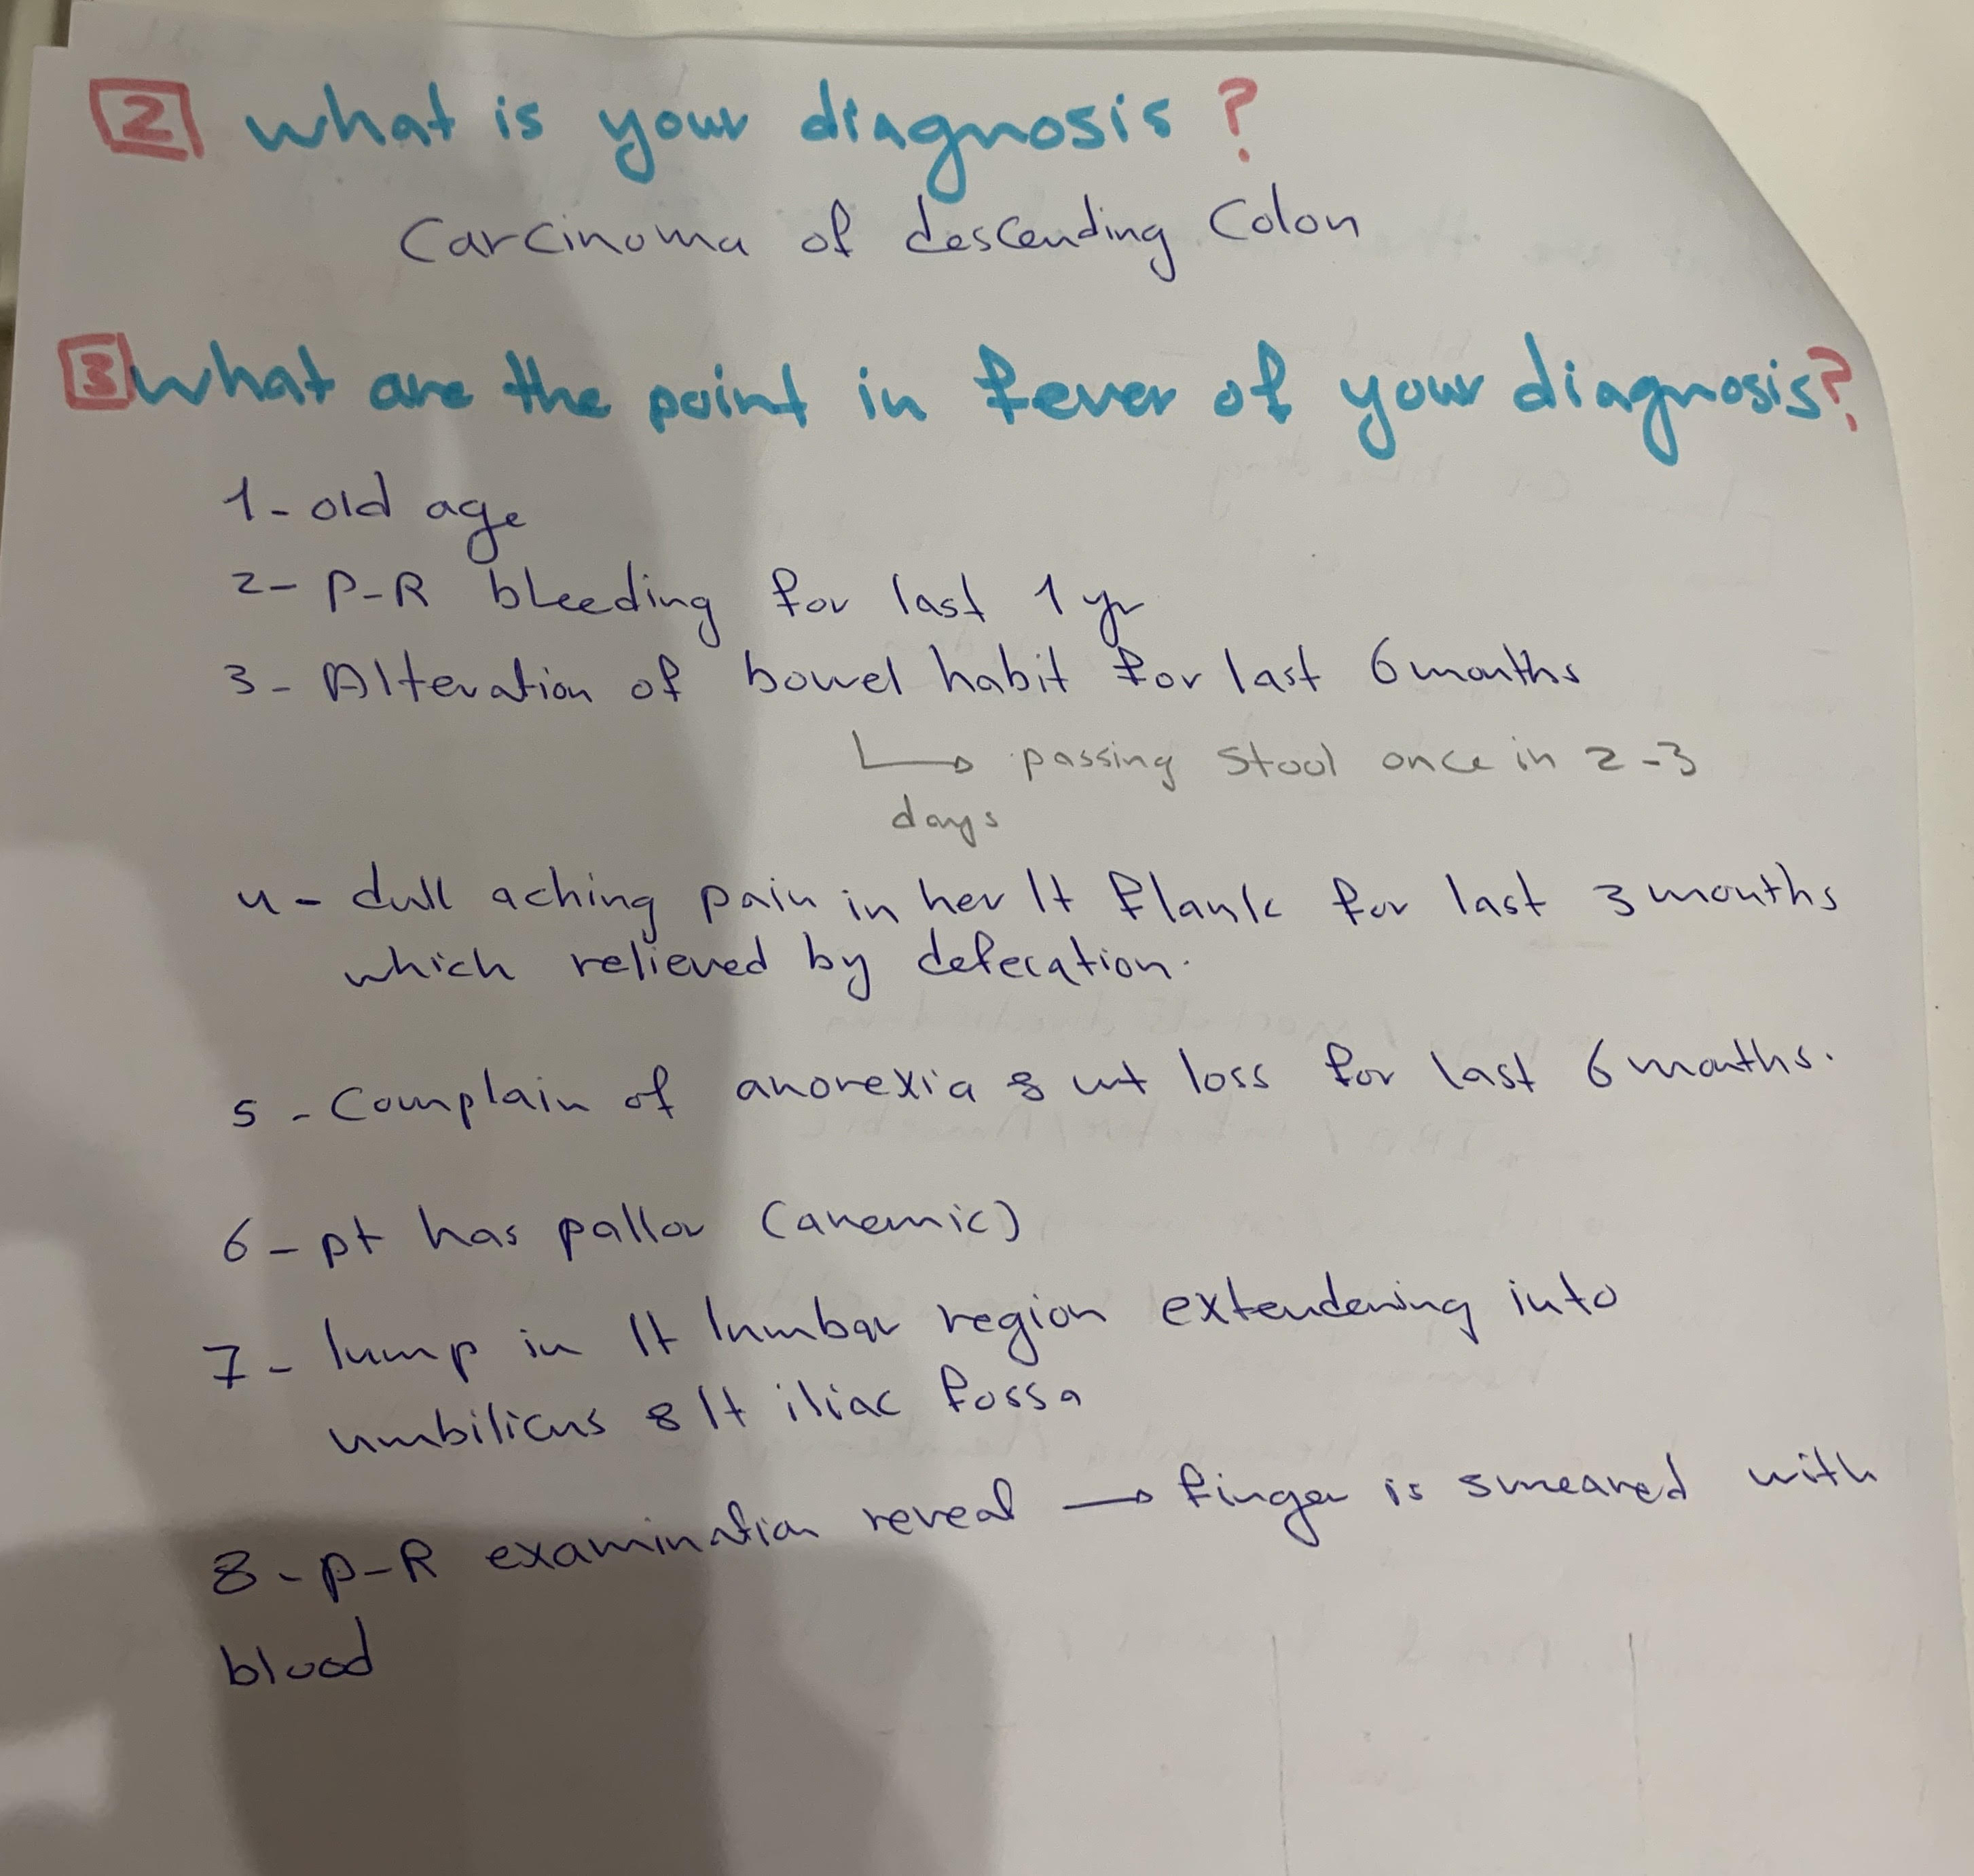 2 what is your diagnosis ?
Carcinoma of descending Colon
3 what are the point in fever of your diagnosis?
1- old age
2- P-R bleeding for last 1 yr
3- Alteration of bowel habit for last 6 months
→ passing stool once in 2-3
days
4- dull aching pain in her lt flank for last 3 months
which relieved by defecation.
5- Complain of anorexia & wt loss for last 6 months.
6- pt has pallor (anemic)
7- lump in lt lumbar region extendening into
umbilicus & lt iliac fossa
8- P-R examination reveal → finger is smeared with
blood